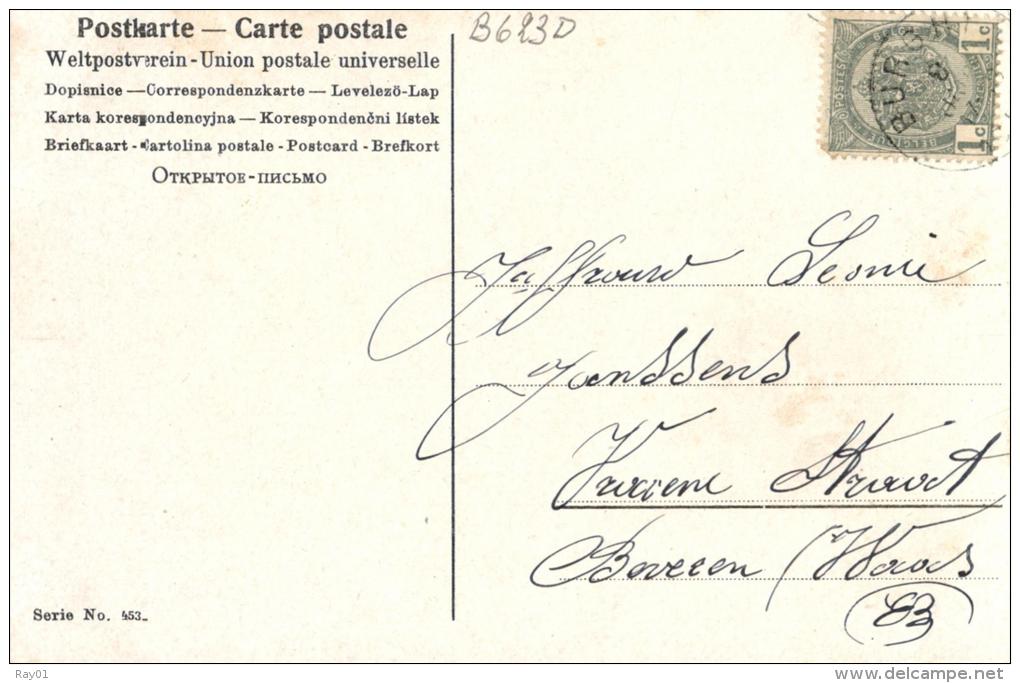 Postkarte — Carte postale
B623D
Weltpostverein - Union postale universelle
Dopisnice — Correspondenzkarte — Levelező-Lap
Karta korespondencyjna — Korespondenční lístek
Briefkaart - Cartolina postale - Postcard - Brefkort
Открытое-письмо
1c
1c
POSTES
BELGIQUE
Juffrouw Leonie
Janssens
Vraene Straat
Beveren (Waas
Serie No. 453
Ray01
www.delcampe.net